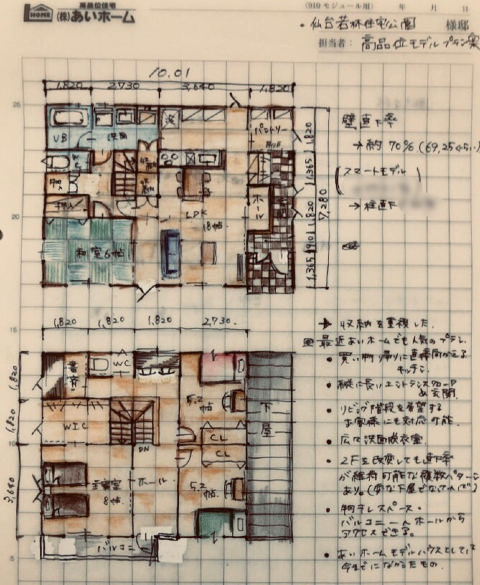 高品位住宅
HOME
(株)あいホーム
(910モジュール用)
年 月 日
・仙台若林住宅公園 様邸
担当者: 高品位モデルプラン
10.01
1,820 2,730 3,640 1,820
25
UB
洗面
パントリー
WC
LDK
18帖
ホール
和室6帖
20
1,820
1,365
1,820
910
1,365
7,280
壁直下率
→約70% (69.25%くらい)
スマートモデル
→柱直下
15
1,820 1,820 1,820 2,730
書斎
WC
5.2
帖
下屋
WIC
DN
CL
CL
主寝室
8帖
ホール
5.2
帖
バルコニー
1,820
1,820
3,640
10
5
→ 収納を重視した。
最近あいホームでも人気のプラン。
・買い物帰りに直接向かえる
キッチン。
・縦に長いエントランスクローク
玄関
・リビング階段を希望する
お客様にも対応可能。
・広々洗面脱衣室。
・2Fを改変しても直下率
が維持可能な複数パターン
・物干しスペース・
バルコニーへホールから
アクセスできる。
・あいホームモデルハウスとして
今までになかったもの。